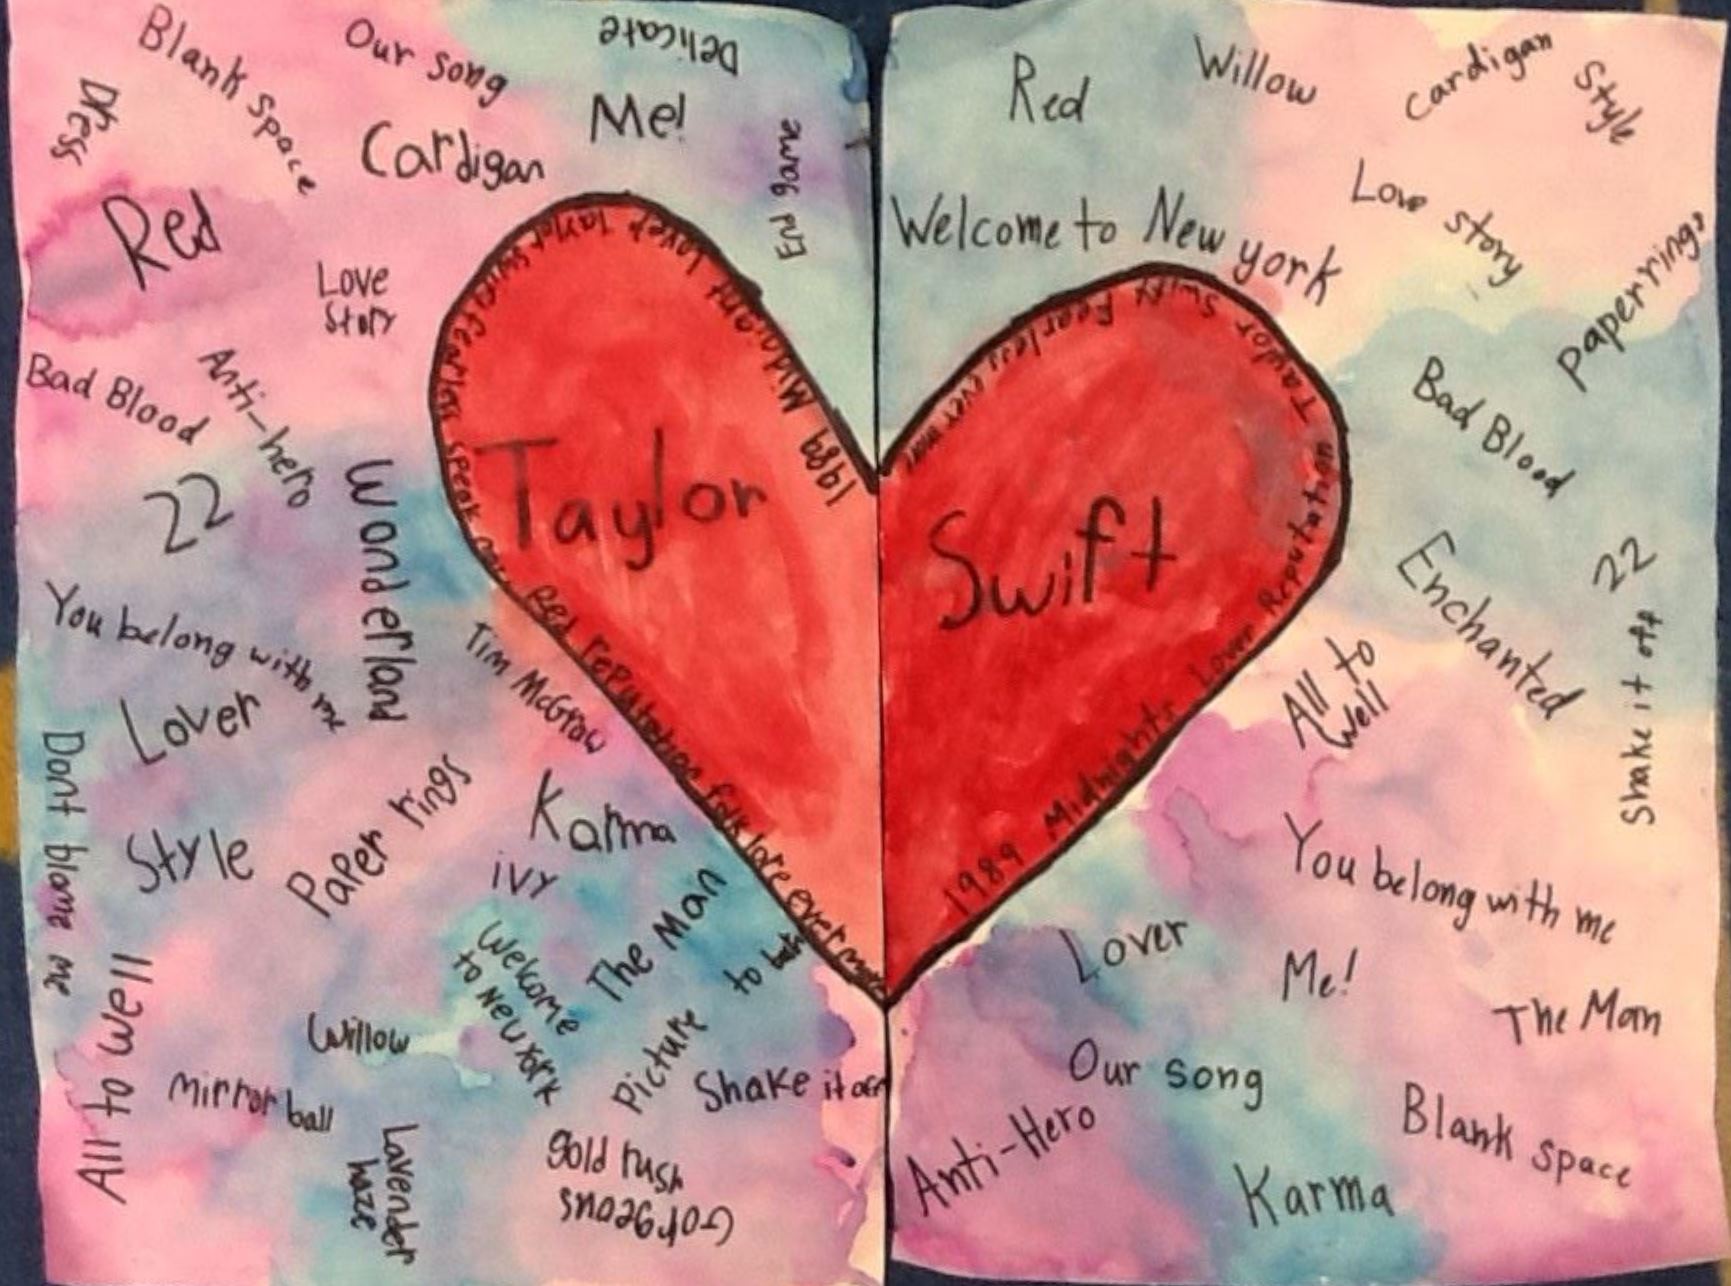 Blank space
Our song
Delicate
Dress
Cardigan
Me!
End game
Red
Love
Story
Bad Blood
Anti-hero
22
Wonderland
You belong with me
Lover
Tim McGraw
Dont blame me
Style
Paper rings
Karma
ivy
The Man
Welcome
to New York
All to well
Willow
Picture
to
Shake it off
mirror ball
Lavender
haze
gold rush
Gorgeous
Taylor
1989 Midnight Lover Taylor Swift Fearless speak now Red reputation folklore evermore
Red
Willow
Cardigan
Style
Welcome to New york
Love story
Paper rings
Bad Blood
Enchanted
22
All to
well
Shake it off
You belong with me
Lover
Me!
The Man
Our song
Anti-Hero
Karma
Blank space
Swift
Fearless Taylor Swift
1989 Midnights Lover Reputation